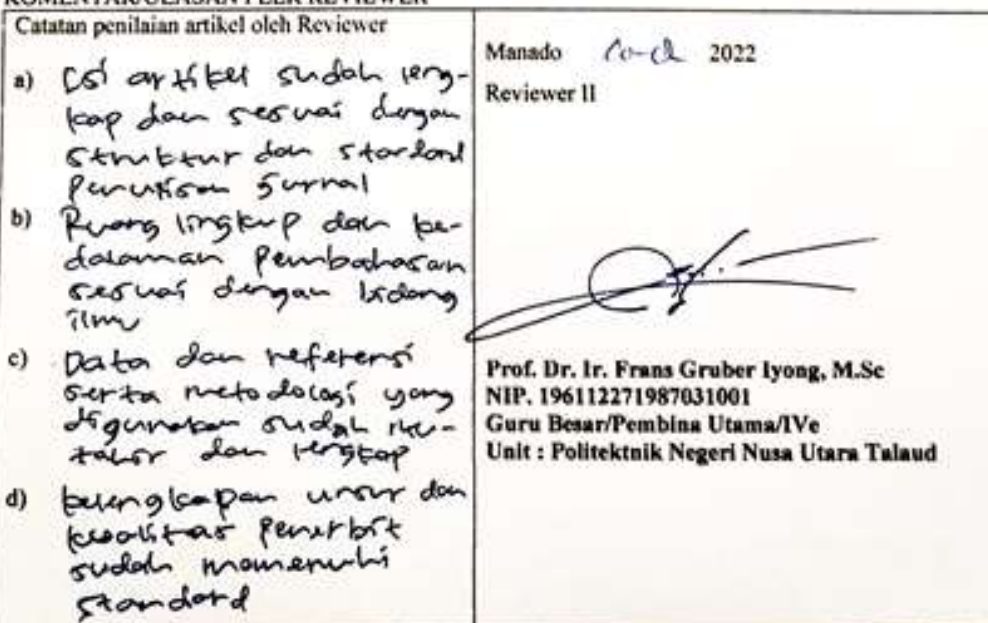 KOMENTAR/ULASAN PEER REVIEWER
Catatan penilaian artikel oleh Reviewer
a) Isi artikel sudah leng-
kap dan sesuai dengan
struktur dan standard
penulisan jurnal
b) Ruang lingkup dan ke-
dalaman pembahasan
sesuai dengan bidang
ilmu
c) Data dan referensi
serta metodologi yang
digunakan sudah mu-
tahir dan lengkap
d) kelengkapan unsur dan
kualitas penerbit
sudah memenuhi
standard
Manado 2022
Reviewer II
Prof. Dr. Ir. Frans Gruber Iyong, M.Sc
NIP. 196112271987031001
Guru Besar/Pembina Utama/IVe
Unit : Politektnik Negeri Nusa Utara Talaud